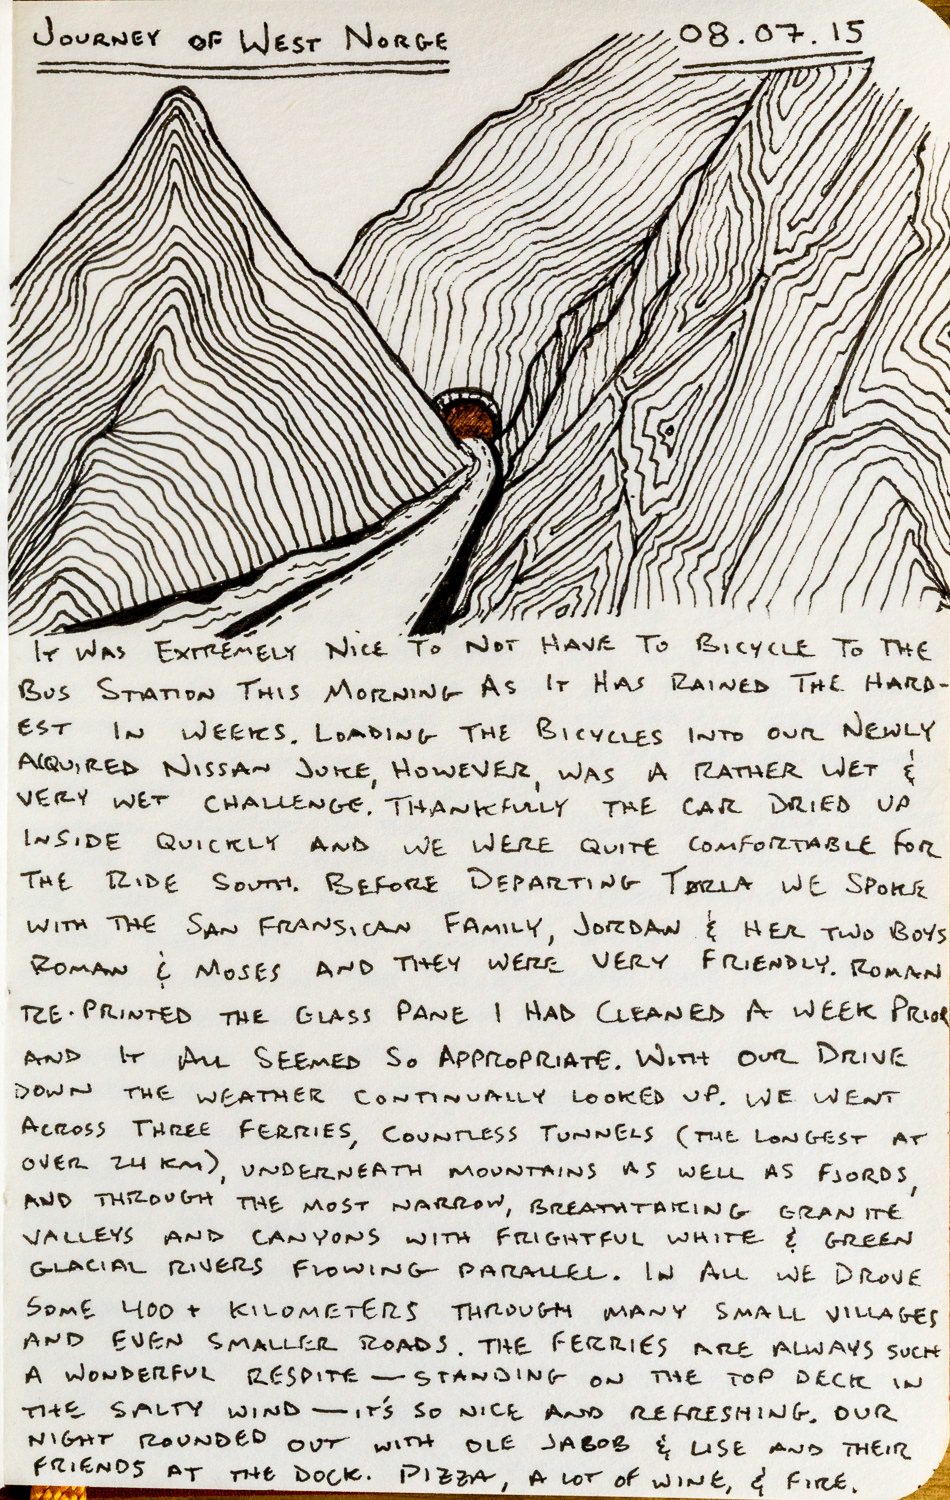 JOURNEY OF WEST NORGE 08.07.15
IT WAS EXTREMELY NICE TO NOT HAVE TO BICYCLE TO THE
BUS STATION THIS MORNING AS IT HAS RAINED THE HARD-
EST IN WEEKS. LOADING THE BICYCLES INTO OUR NEWLY
ACQUIRED NISSAN JUKE, HOWEVER, WAS A RATHER WET &
VERY WET CHALLENGE. THANKFULLY THE CAR DRIED UP
INSIDE QUICKLY AND WE WERE QUITE COMFORTABLE FOR
THE RIDE SOUTH. BEFORE DEPARTING TØRLA WE SPOKE
WITH THE SAN FRANSICAN FAMILY, JORDAN & HER TWO BOYS
ROMAN & MOSES AND THEY WERE VERY FRIENDLY. ROMAN
RE-PRINTED THE GLASS PANE I HAD CLEANED A WEEK PRIOR
AND IT ALL SEEMED SO APPROPRIATE. WITH OUR DRIVE
DOWN THE WEATHER CONTINUALLY LOOKED UP. WE WENT
ACROSS THREE FERRIES, COUNTLESS TUNNELS (THE LONGEST AT
OVER 24 KM), UNDERNEATH MOUNTAINS AS WELL AS FJORDS,
AND THROUGH THE MOST NARROW, BREATHTAKING GRANITE
VALLEYS AND CANYONS WITH FRIGHTFUL WHITE & GREEN
GLACIAL RIVERS FLOWING PARALLEL. IN ALL WE DROVE
SOME 400+ KILOMETERS THROUGH MANY SMALL VILLAGES
AND EVEN SMALLER ROADS. THE FERRIES ARE ALWAYS SUCH
A WONDERFUL RESPITE — STANDING ON THE TOP DECK IN
THE SALTY WIND — IT'S SO NICE AND REFRESHING. OUR
NIGHT ROUNDED OUT WITH OLE JABOB & LISE AND THEIR
FRIENDS AT THE DOCK. PIZZA, A LOT OF WINE, & FIRE.